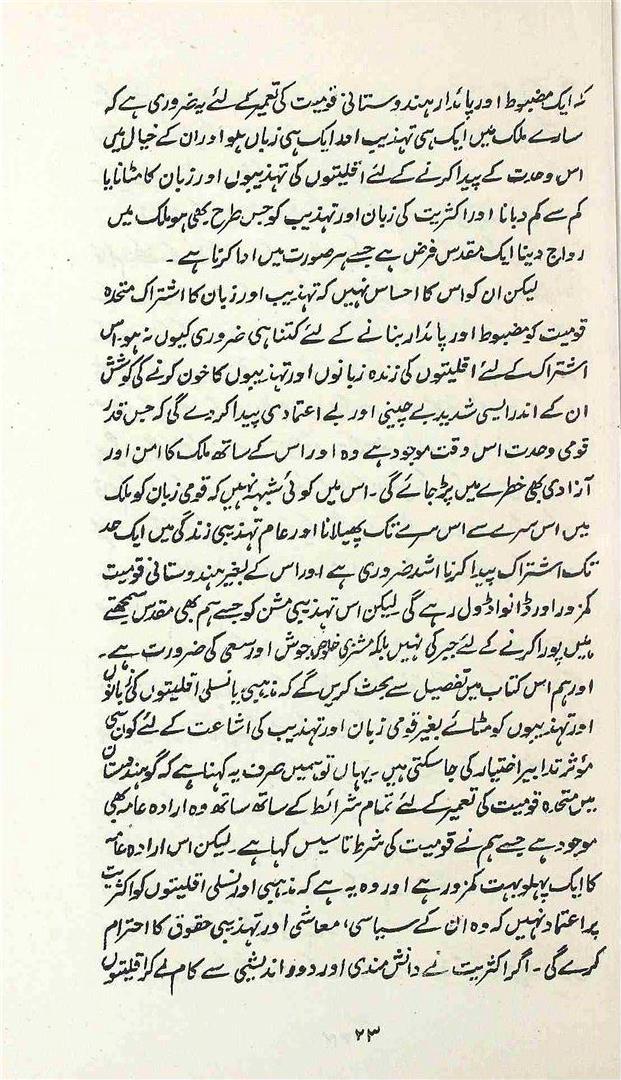 کہ ایک مضبوط اور پائدار ہندوستانی قومیت کی تعمیر کے لئے یہ ضروری ہے کہ
سارے ملک میں ایک ہی تہذیب اور ایک ہی زباں ہو اور ان کے خیال میں
اس وحدت کے پیدا کرنے کے لئے اقلیتوں کی تہذیبوں اور زبان کا مٹانا یا
کم سے کم دبانا اور اکثریت کی زبان اور تہذیب کو جس طرح بھی ہو ملک میں
رواج دینا ایک مقدس فرض ہے جسے ہر صورت میں ادا کرنا ہے ۔
لیکن ان کو اس کا احساس نہیں کہ تہذیب اور زبان کا اشتراک متحدہ
قومیت کو مضبوط اور پائدار بنانے کے لئے کتنا ہی ضروری کیوں نہ ہو، اس
اشتراک کے لئے اقلیتوں کی زندہ زبانوں اور تہذیبوں کا خون کرنے کی کوشش
ان کے اندر ایسی شدید بے چینی اور بے اعتمادی پیدا کر دے گی کہ جس قدر
قومی وحدت اس وقت موجود ہے وہ اور اس کے ساتھ ملک کا امن اور
آزادی بھی خطرے میں پڑ جائے گی ۔ اس میں کوئی شبہہ نہیں کہ قومی زبان کو ملک
میں اس سرے سے اس سرے تک پھیلانا اور عام تہذیبی زندگی میں ایک حد
تک اشتراک پیدا کرنا اشد ضروری ہے اور اس کے بغیر ہندوستانی قومیت
کمزور اور ڈانواڈول رہے گی لیکن اس تہذیبی مشن کو جسے ہم بھی مقدس سمجھتے
ہیں پورا کرنے کے لئے جبر کی نہیں بلکہ مشنری خلوص، جوش اور سعی کی ضرورت ہے ۔
اور ہم اس کتاب میں تفصیل سے بحث کریں گے کہ مذہبی یا نسلی اقلیتوں کی زبانوں
اور تہذیبوں کو مٹائے بغیر قومی زبان اور تہذیب کی اشاعت کے لئے کون سی
مؤثر تدابیر اختیار کی جا سکتی ہیں ۔ یہاں تو ہمیں صرف یہ کہنا ہے کہ گو ہندوستان
میں متحدہ قومیت کی تعمیر کے لئے تمام شرائط کے ساتھ ساتھ وہ ارادہ عامہ بھی
موجود ہے جسے ہم نے قومیت کی شرط تاسیس کہا ہے ۔ لیکن اس ارادہ عامہ
کا ایک پہلو بہت کمزور ہے اور وہ یہ ہے کہ مذہبی اور نسلی اقلیتوں کو اکثریت
پر اعتماد نہیں کہ وہ ان کے سیاسی، معاشی اور تہذیبی حقوق کا احترام
کرے گی ۔ اگر اکثریت نے دانش مندی اور دور اندیشی سے کام لے کر اقلیتوں
۲۳